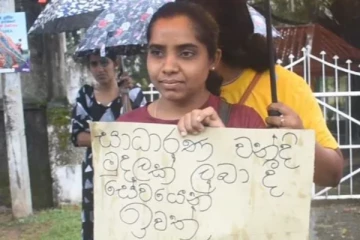 සාධාරණ වන්දි
මුදලක් ලබා දී
සේවයෙන්
ඉවත්